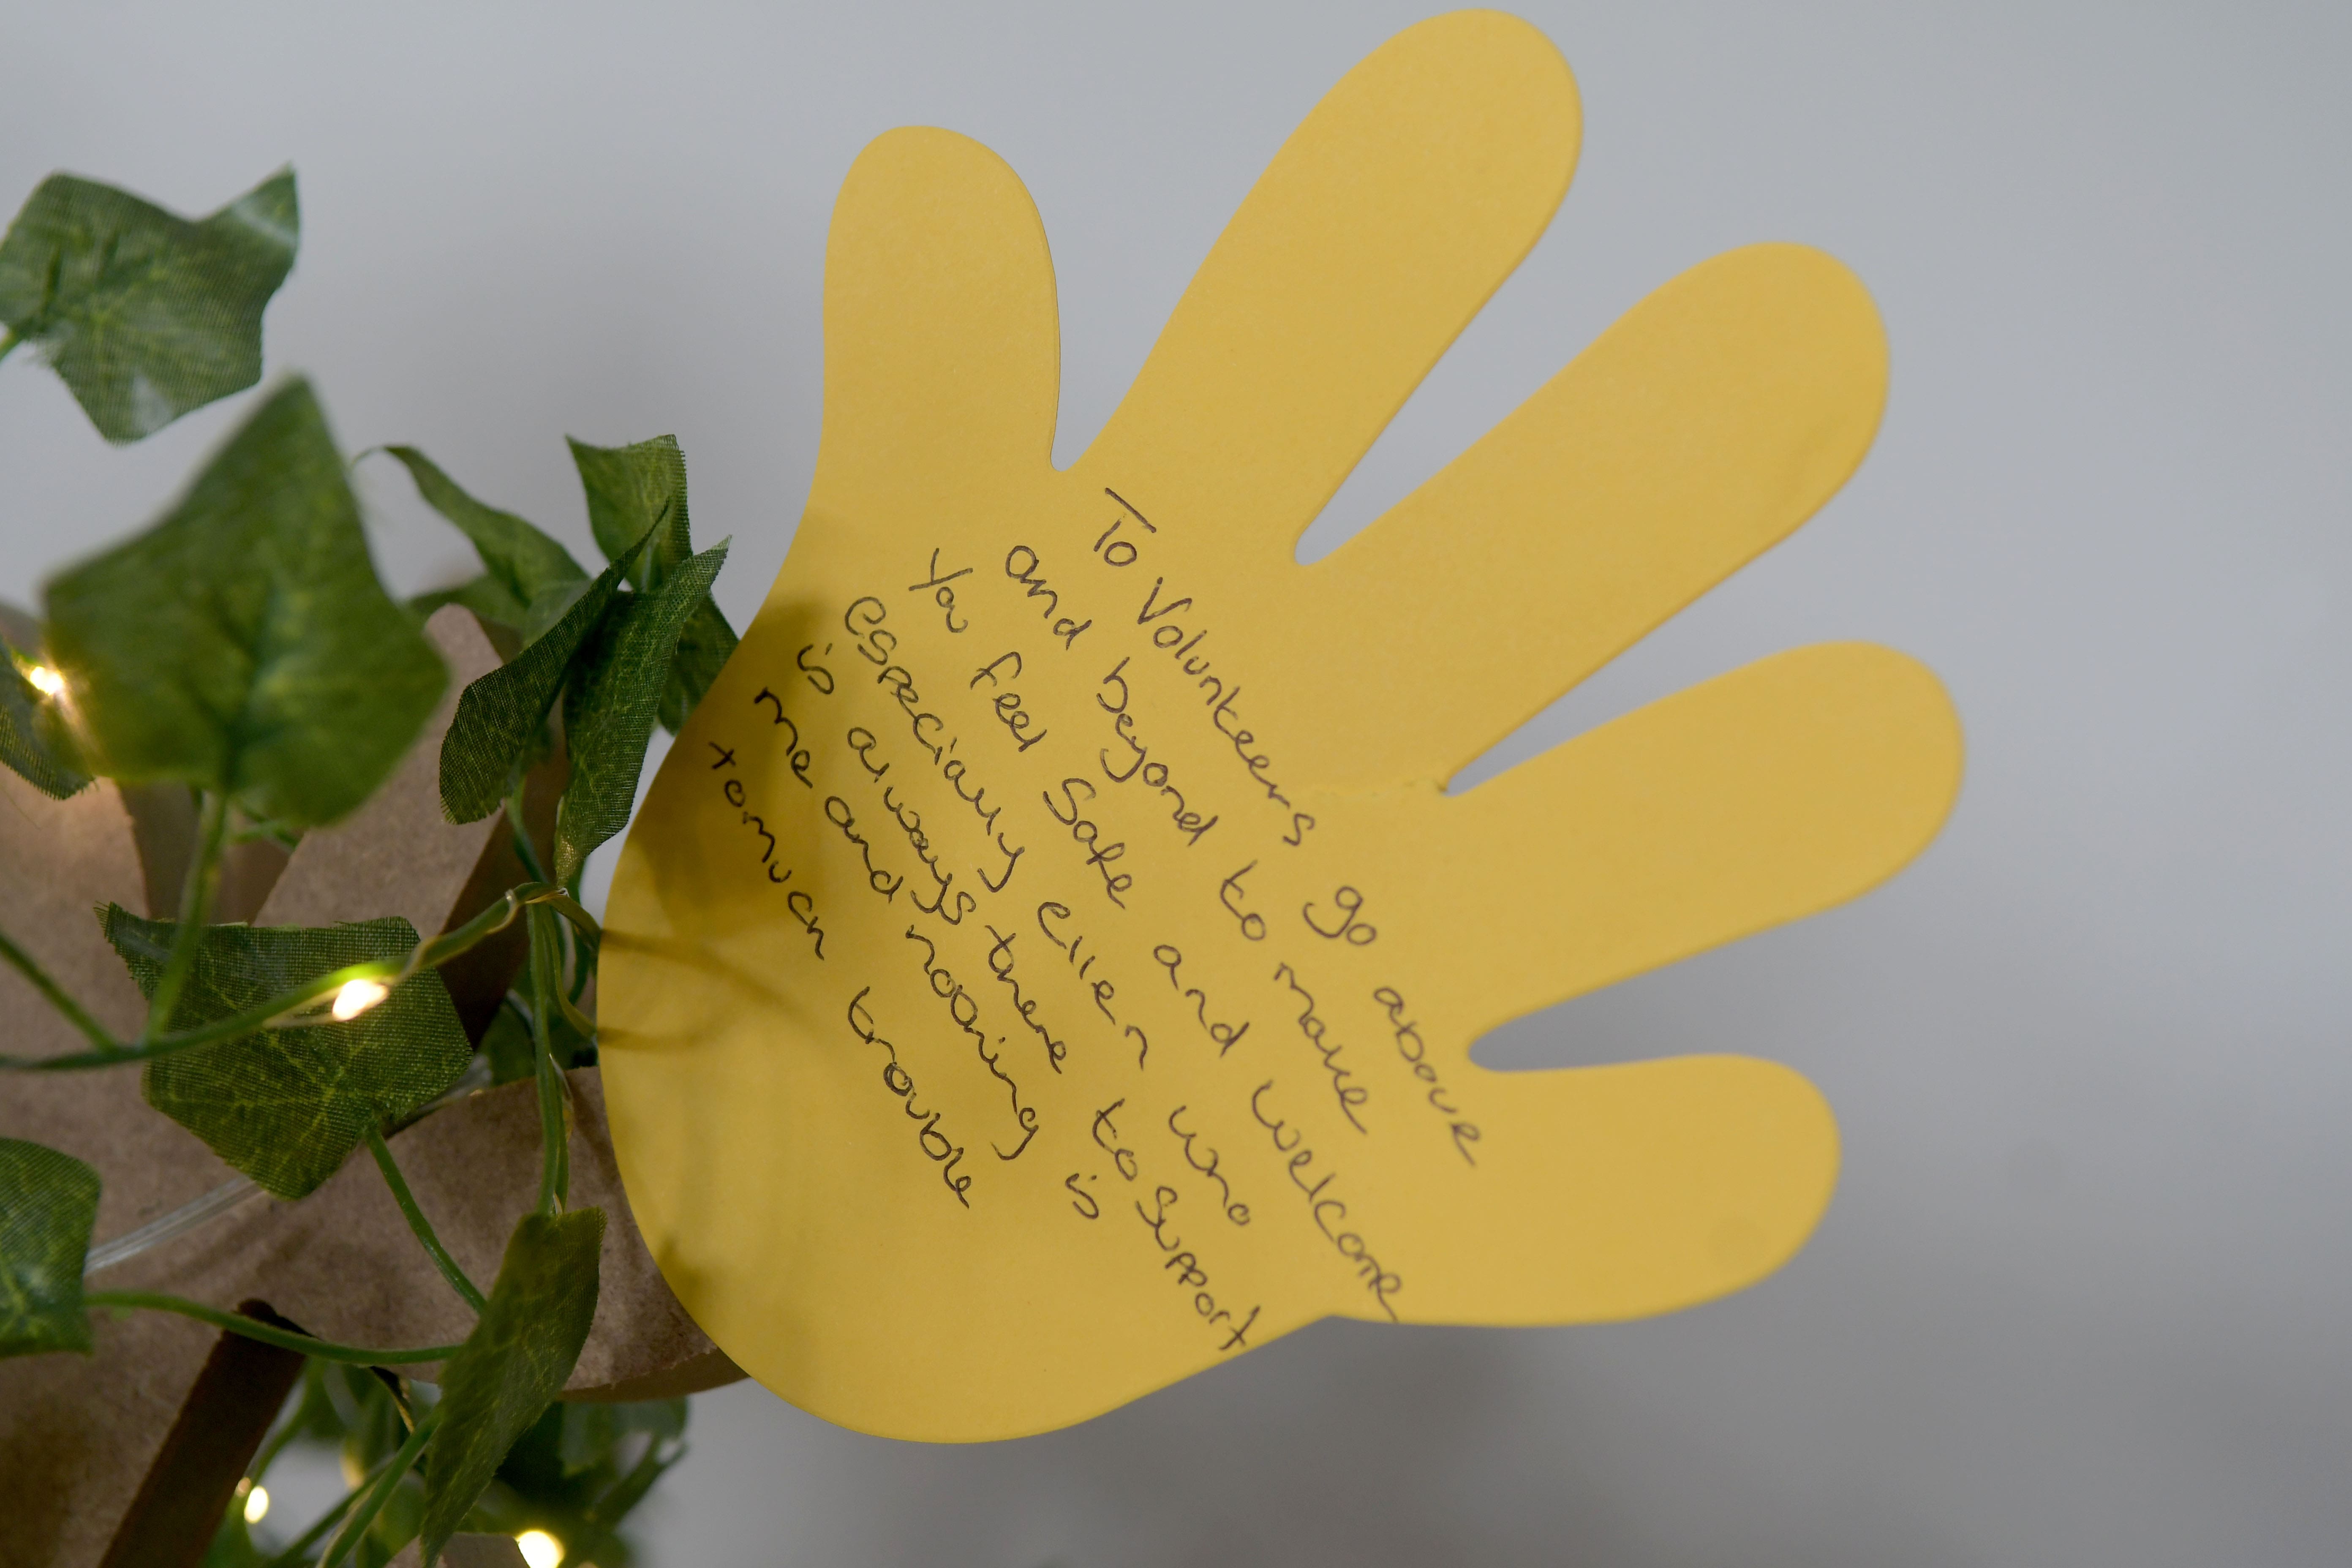 To Volunteers go above
and beyond to make
You feel Safe and welcome
especially Eilen who
is always there to Support
me and nothing is
to much trouble